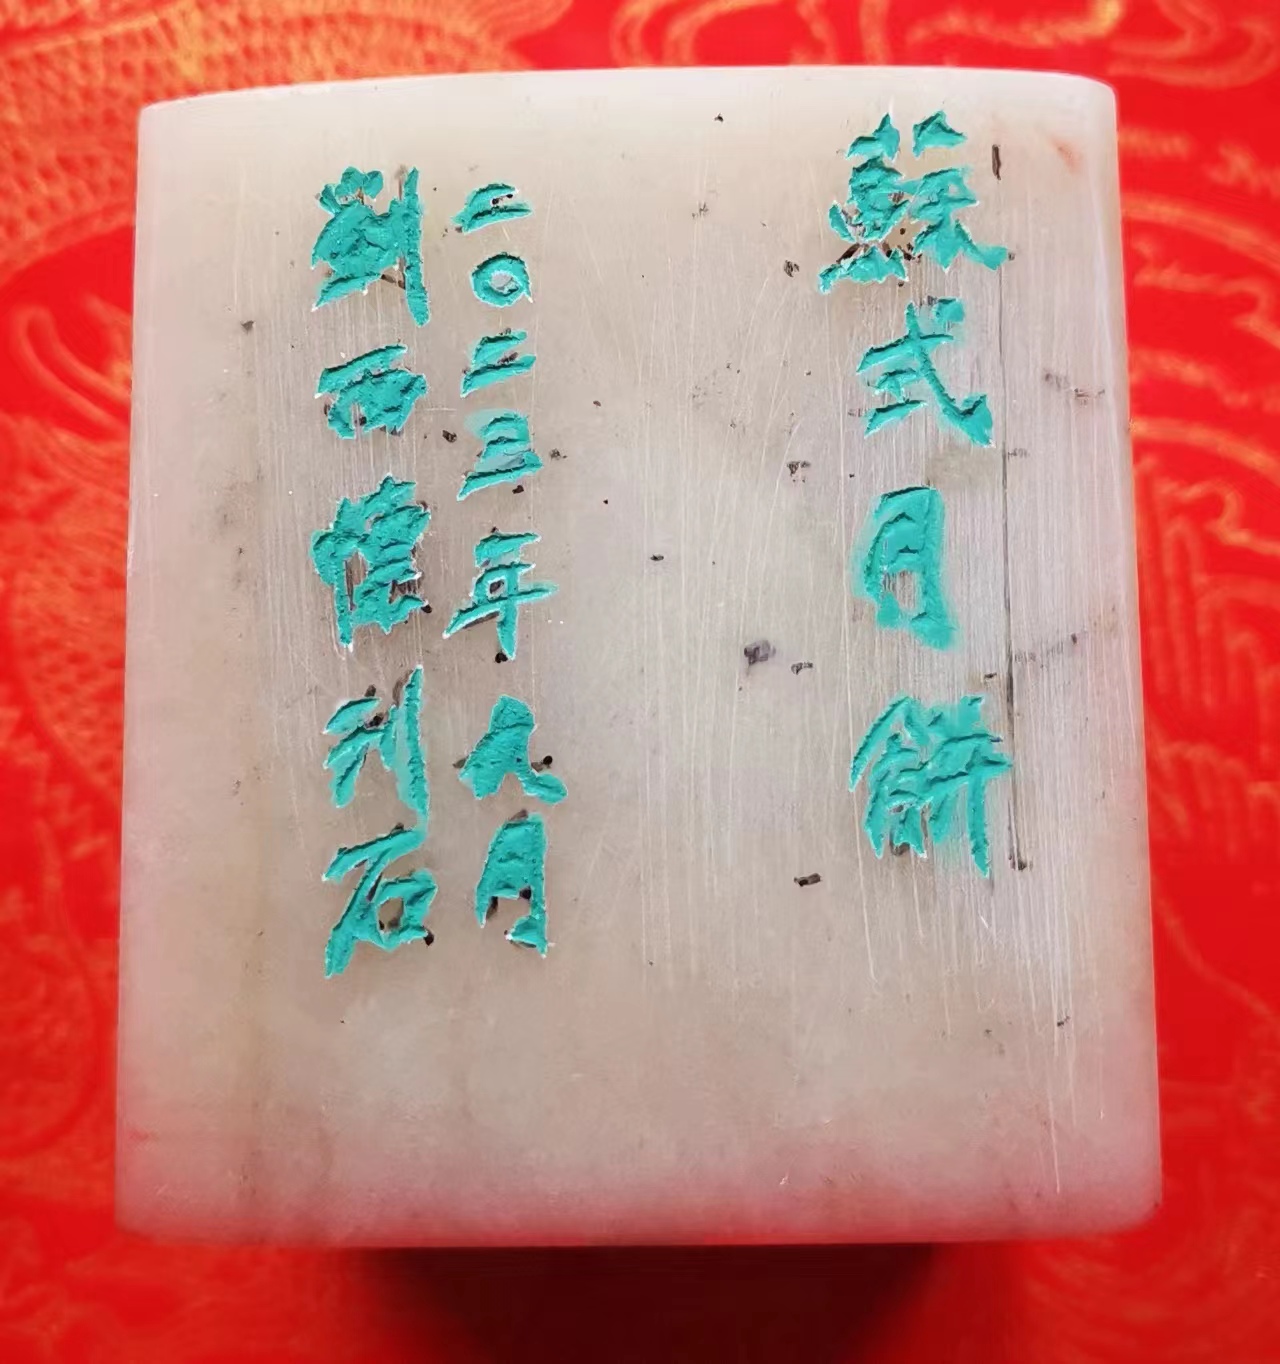 蘇式月餅
二〇二三年九月
劉西偉刊石